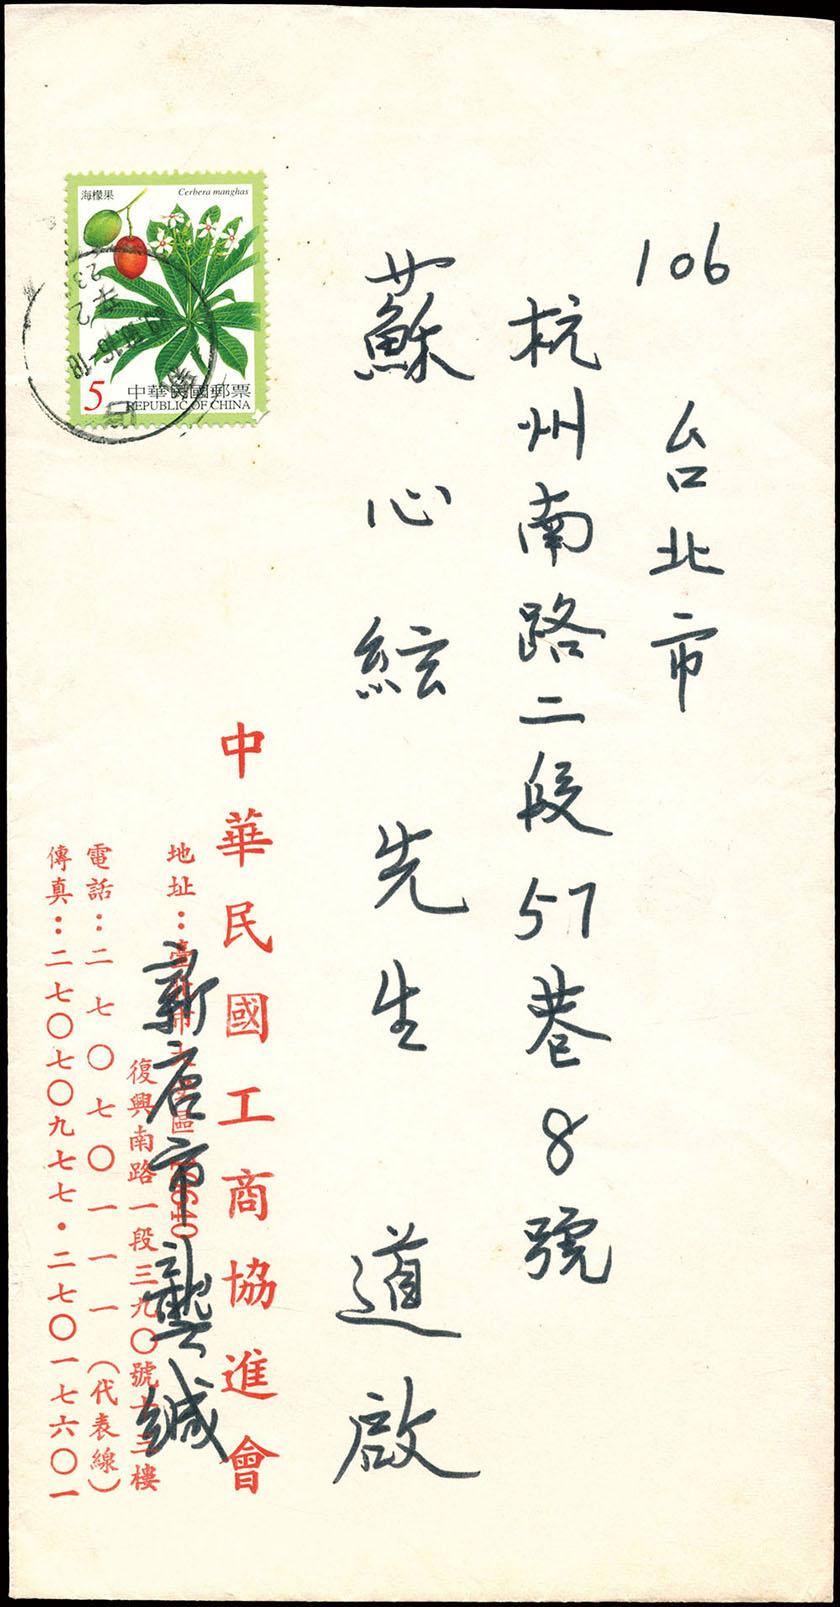 106
台北市
杭州南路二段57巷8號
蘇心絃先生 道啟
中華民國工商協進會
地址：臺北市大安區10640
復興南路一段三九〇號十三樓
電話：二七〇七〇一一一（代表線）
傳真：二七〇七〇九七七・二七〇一七六〇一
新店市龔緘
海檬果
Cerbera manghas
5
中華民國郵票
REPUBLIC OF CHINA